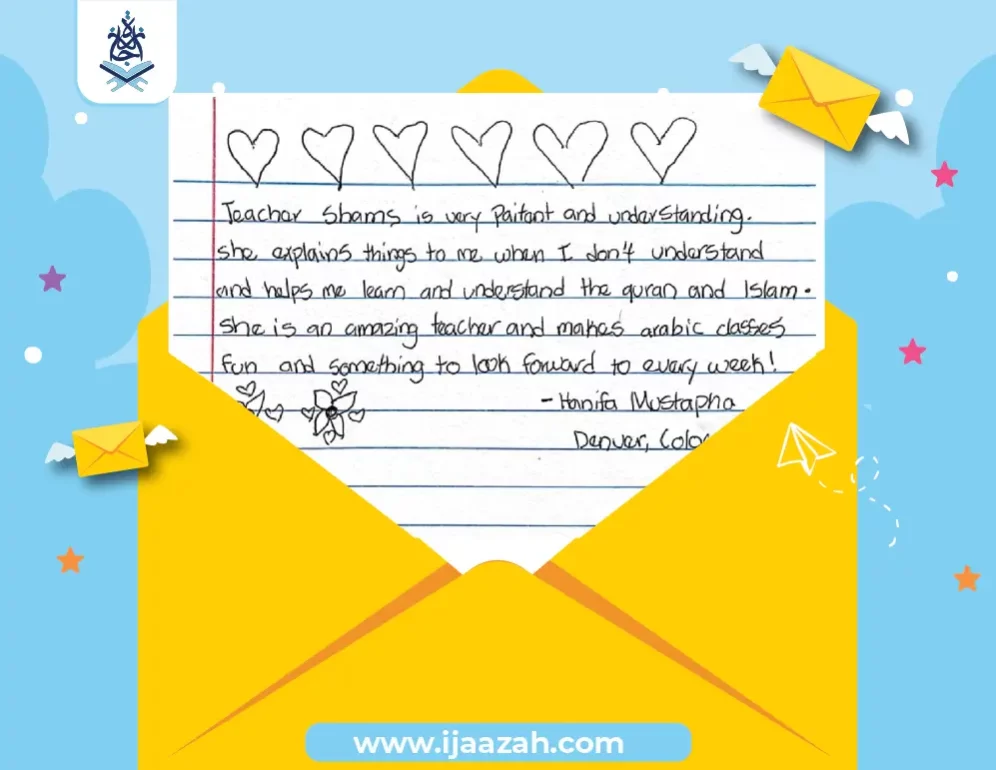 Teacher Shams is very Paitant and understanding.
she explains things to me when I don't understand
and helps me learn and understand the quran and Islam.
she is an amazing teacher and makes arabic classes
fun and something to look forward to every week!
- Hanifa Mustapha
Denver, Colo
www.ijaazah.com